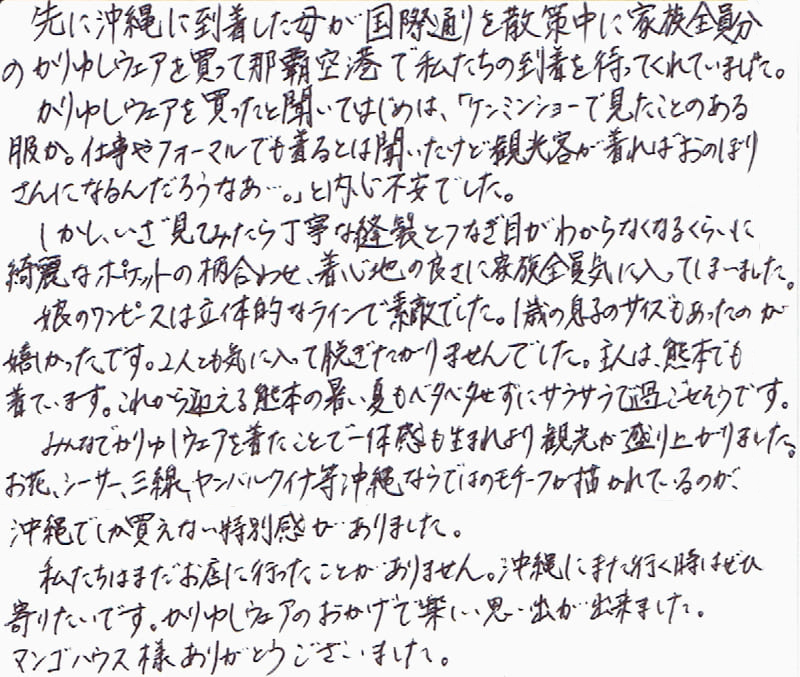 先に沖縄に到着した母が国際通りを散策中に家族全員分
のかりゆしウェアを買って那覇空港で私たちの到着を待ってくれていました。
かりゆしウェアを買ったと聞いてはじめは、「ケンミンショーで見たことのある
服か。仕事やフォーマルでも着るとは聞いたけど観光客が着ればおのぼり
さんになるんだろうなあ…。」と内心不安でした。
しかし、いざ見てみたら丁寧な縫製とつなぎ目がわからなくなるくらいに
綺麗なポケットの柄合わせ、着心地の良さに家族全員気に入ってしまいました。
娘のワンピースは立体的なラインで素敵でした。1歳の息子のサイズもあったのが
嬉しかったです。2人とも気に入って脱ぎたがりませんでした。主人は、熊本でも
着ています。これから迎える熊本の暑い夏もベタベタせずにサラサラで過ごせそうです。
みんなでかりゆしウェアを着たことで一体感も生まれより観光が盛り上がりました。
お花、シーサー、三線、ヤンバルクイナ等沖縄ならではのモチーフが描かれているのが、
沖縄でしか買えない特別感がありました。
私たちはまだお店に行ったことがありません。沖縄にまた行く時はぜひ
寄りたいです。かりゆしウェアのおかげで楽しい思い出が出来ました。
マンゴハウス様ありがとうございました。